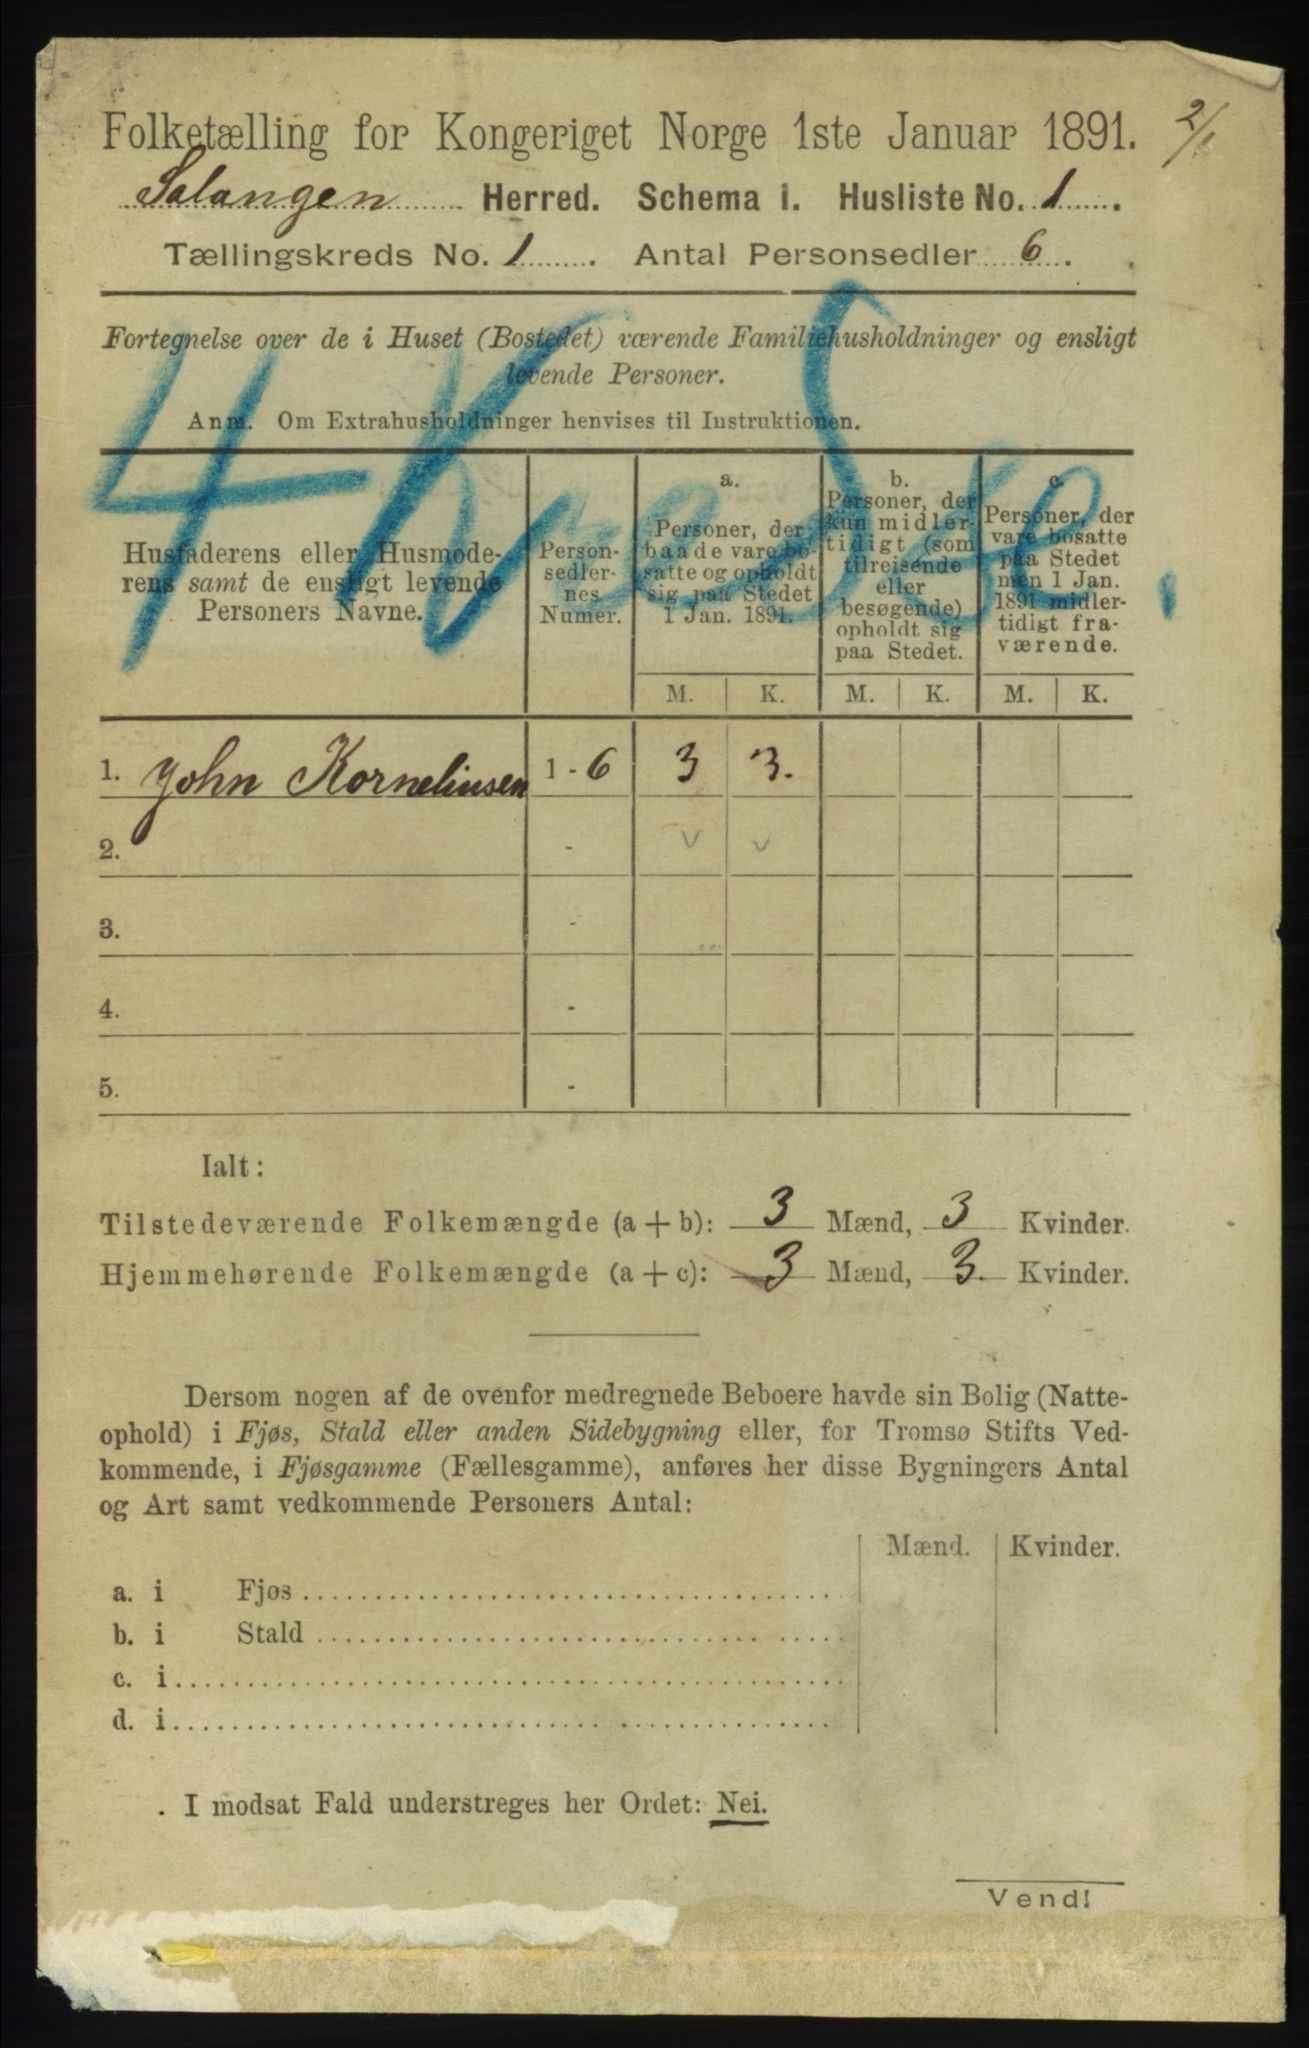 Folketælling for Kongeriget Norge 1ste Januar 1891.
Salangen Herred. Schema I. Husliste No. 1.
Tællingskreds No. 1. Antal Personsedler 6.
Fortegnelse over de i Huset (Bostedet) værende Familiehusholdninger og ensligt
levende Personer.
Anm. Om Extrahusholdninger henvises til Instruktionen.
Husfaderens eller Husmode-
rens samt de ensligt levende
Personers Navne.
Person-
sedler-
nes
Numer.
a.
Personer, der
baade vare bo-
satte og opholdt
sig paa Stedet
1 Jan. 1891.
b.
Personer, der
kun midler-
tidigt (som
tilreisende
eller
besøgende)
opholdt sig
paa Stedet.
c.
Personer, der
vare bosatte
paa Stedet
men 1 Jan.
1891 midler-
tidigt fra-
værende.
M. K. M. K. M. K.
1. John Kornelinsen 1 - 6 3 3.
2. -
3. -
4. -
5. -
Ialt:
Tilstedeværende Folkemængde (a + b): 3 Mænd, 3 Kvinder.
Hjemmehørende Folkemængde (a + c): 3 Mænd, 3. Kvinder.
Dersom nogen af de ovenfor medregnede Beboere havde sin Bolig (Natte-
ophold) i Fjøs, Stald eller anden Sidebygning eller, for Tromsø Stifts Ved-
kommende, i Fjøsgamme (Fællesgamme), anføres her disse Bygningers Antal
og Art samt vedkommende Personers Antal:
Mænd. Kvinder.
a. i Fjøs
b. i Stald
c. i
d. i
I modsat Fald understreges her Ordet: Nei.
Vend!